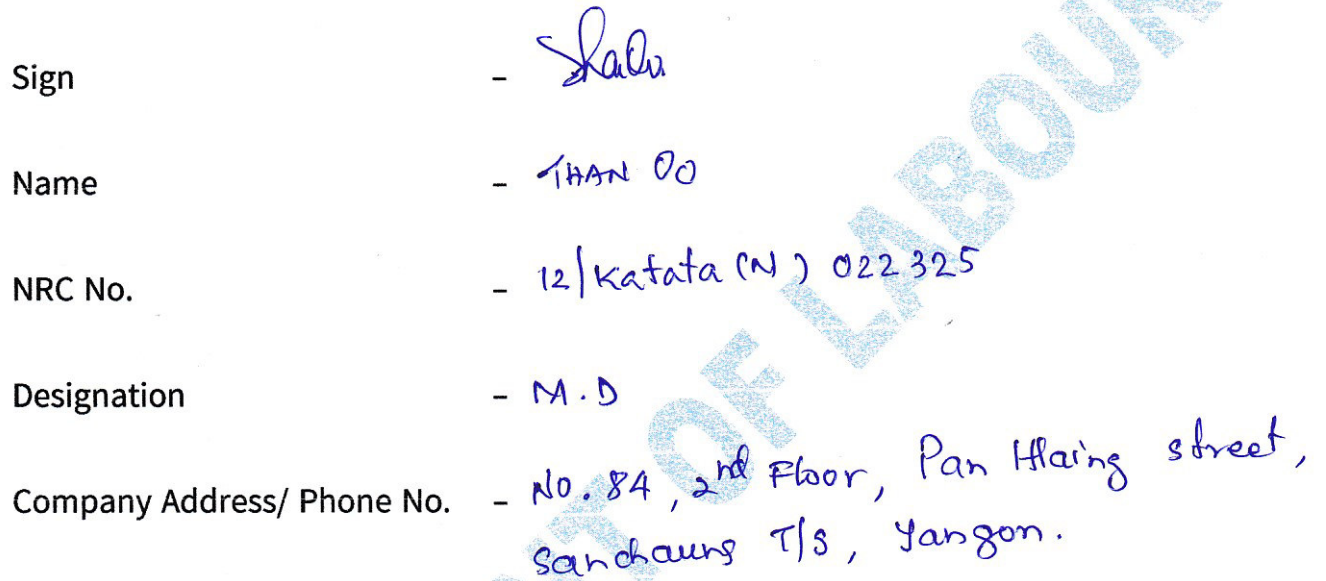 Sign -
Name - THAN OO
NRC No. - 12/Katata (N) 022325
Designation - M.D
Company Address/ Phone No. - No. 84, 2nd Floor, Pan Hlaing street,
Sanchaung T/S, Yangon.
T OF LABOUR